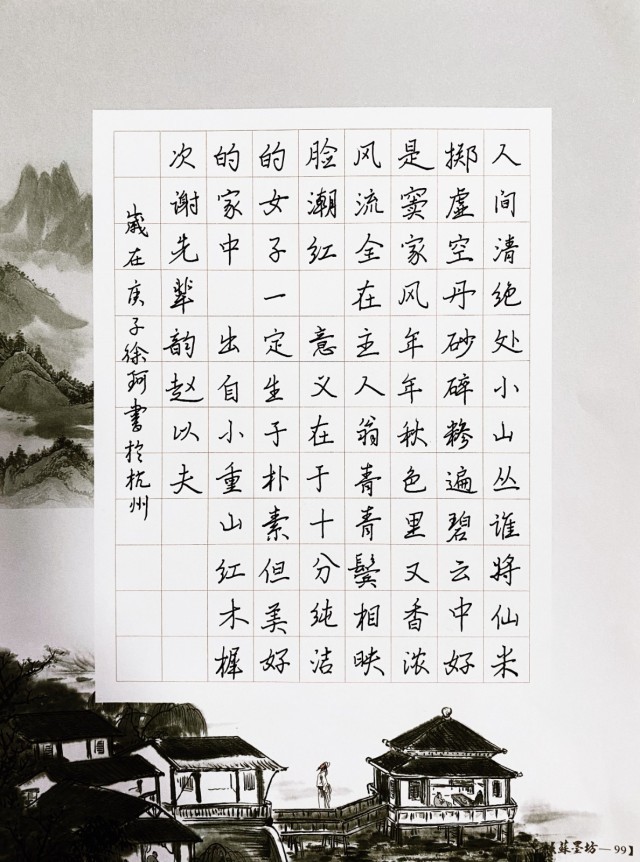 人间清绝处小山丛谁将仙米
掷虚空丹砂碎糁遍碧云中好
是窦家风年年秋色里又香浓
风流全在主人翁青青鬓相映
脸潮红 意义在于十分纯洁
的女子一定生于朴素但美好
的家中 出自小重山红木樨
次谢先辈韵赵以夫
歲在庚子徐珂書於杭州
蘇墨坊—99】